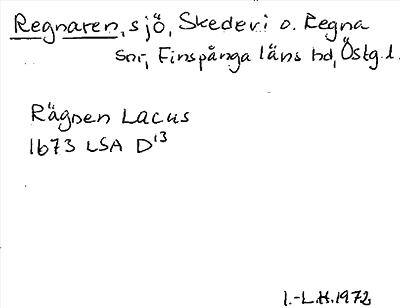 Regnaren, sjö, Skedevi o. Regna
snr, Finspånga läns hd, Östg.l.
Rägnen Lacus
1673 LSA D13
I.-L.H. 1972